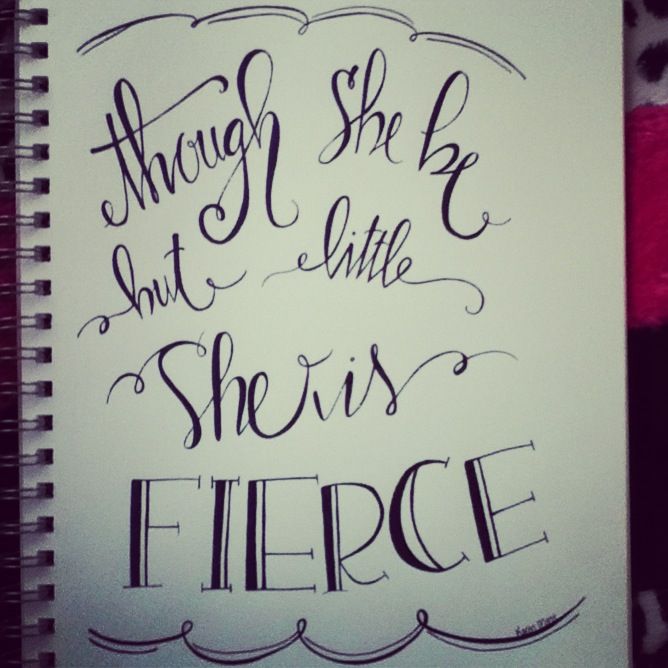 though She be
but little
She is
FIERCE